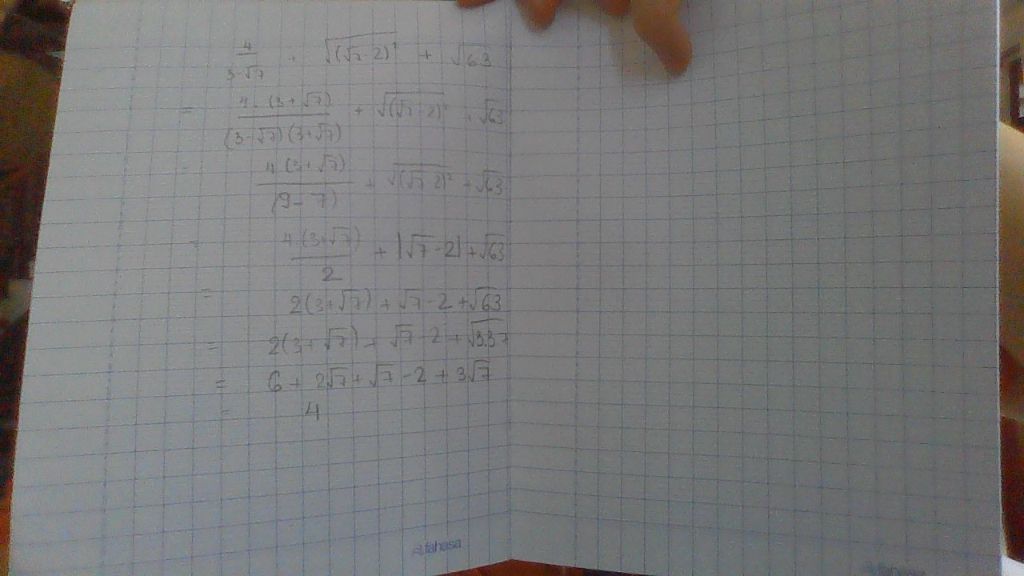 4/(3-√7) + √(√7-2)² + √63
= 4·(3+√7)/((3-√7)(3+√7)) + √(√7-2)² + √63
= 4(3+√7)/(9-7) + √(√7-2)² + √63
= 4(3+√7)/2 + |√7-2| + √63
= 2(3+√7) + √7-2 + √63
= 2(3+√7) + √7-2 + √337
= 6 + 2√7 + √7 - 2 + 3√7
= 4
fahasa
fahasa